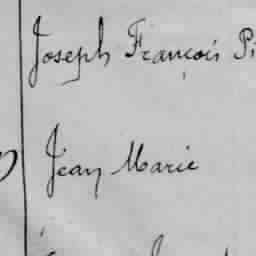 Joseph François Pi
Jean Marie